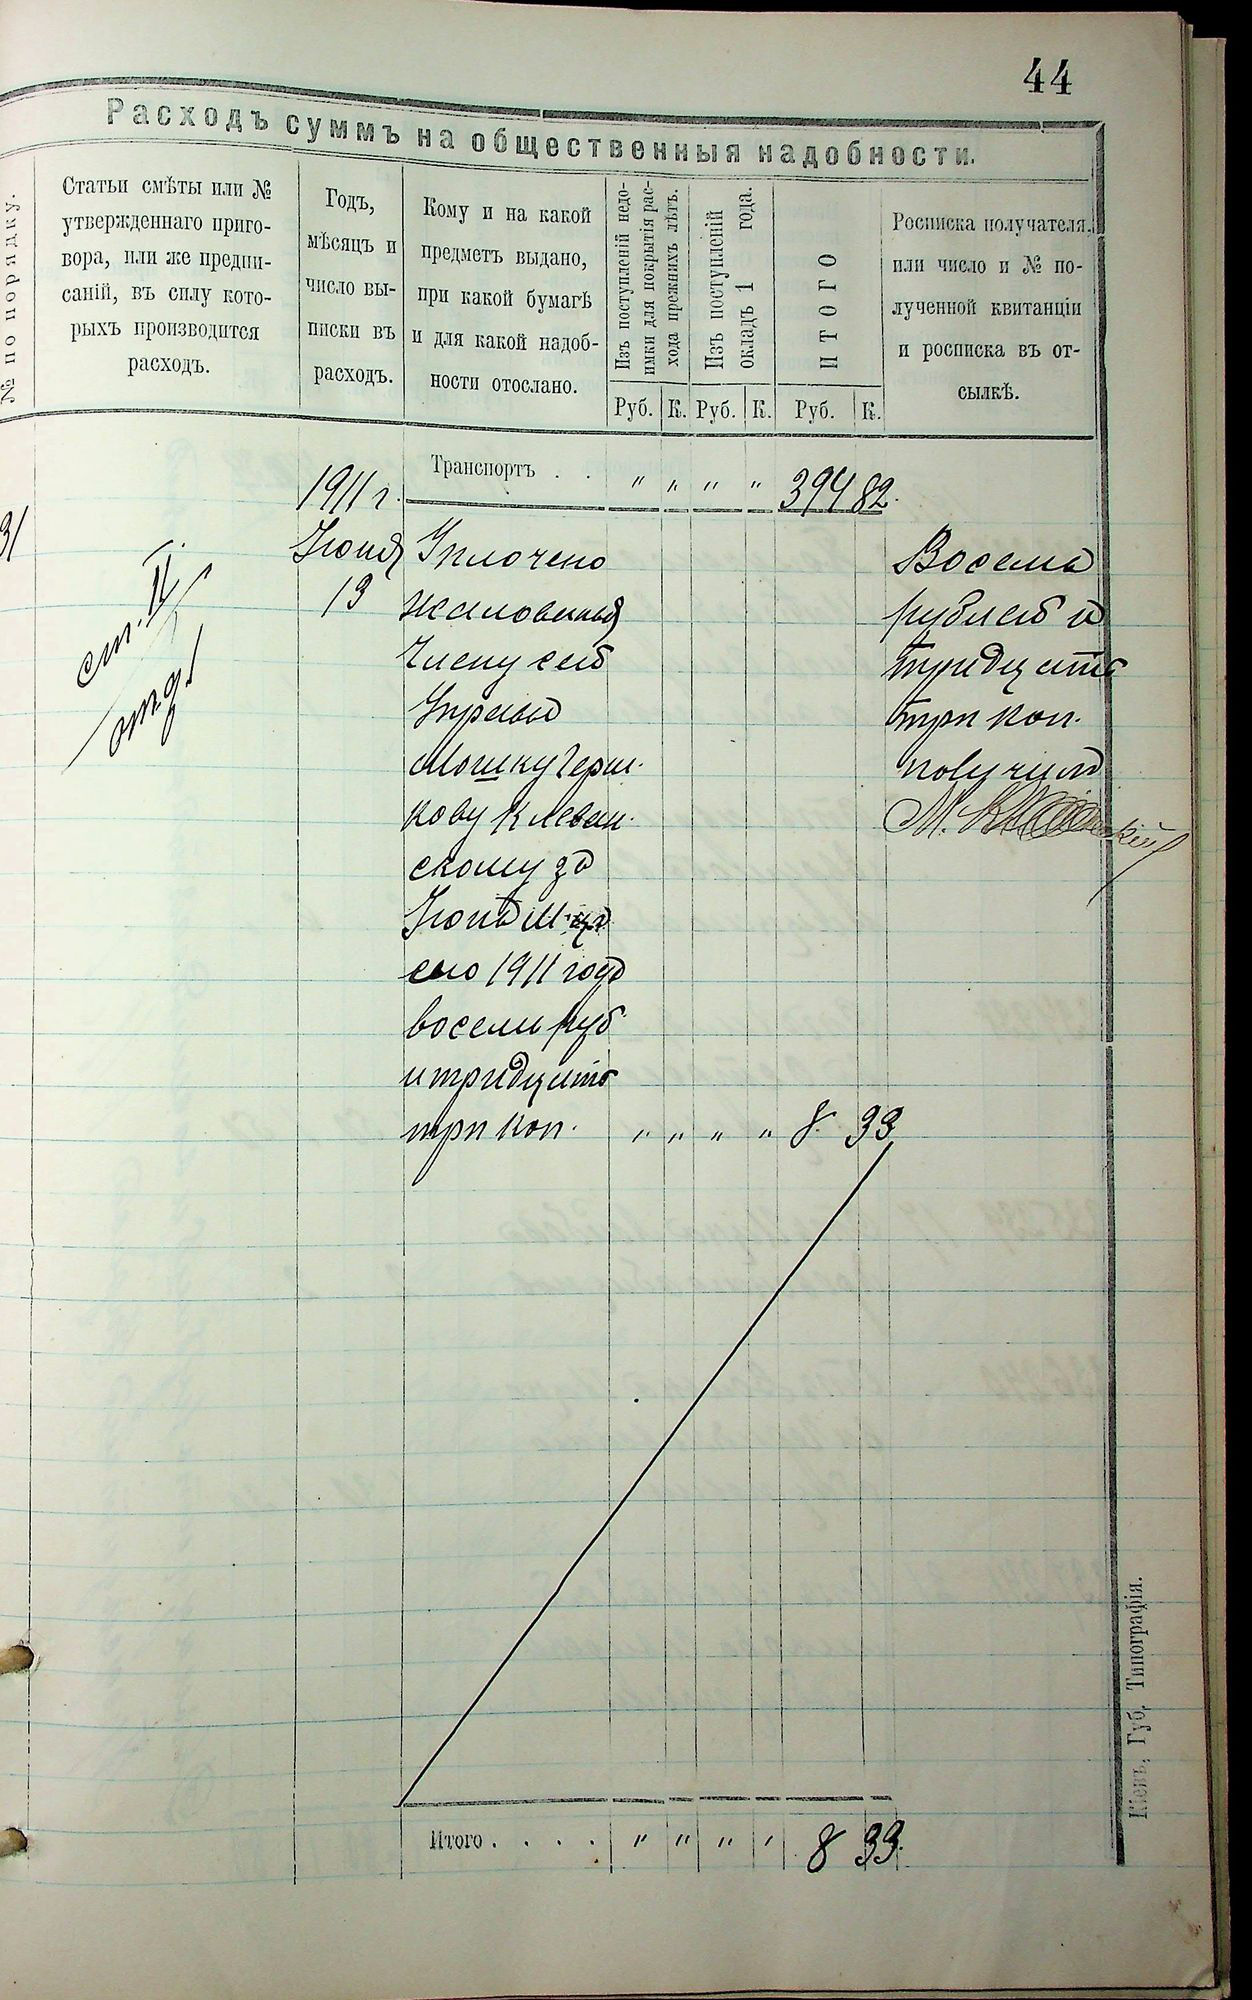 44
Расходъ суммъ на общественныя надобности.
№ по порядку.
Статьи смѣты или №
утвержденнаго приго-
вора, или же предпи-
саній, въ силу кото-
рыхъ производится
расходъ.
Годъ,
мѣсяцъ и
число вы-
писки въ
расходъ.
Кому и на какой
предметъ выдано,
при какой бумагѣ
и для какой надоб-
ности отослано.
Изъ поступленій недо-
имки для покрытія рас-
хода прежнихъ лѣтъ.
Изъ поступленій
окладъ 1 года.
ИТОГО
Росписка получателя,
или число и № по-
лученной квитанціи
и росписка въ от-
сылкѣ.
Руб. К. Руб. К. Руб. К.
Транспортъ . . " " " " 394 82.
1911 г.
31
ст. II
отд 1
Іюня
13
Уплочено
жалованья
Члену сей
Управы
Мошку Герш-
кову Клеван-
скому за
Іюнь М-цъ
сего 1911 года
восемь руб.
и тридцать
три коп. " " " " 8. 33
Восемь
рублей и
тридцать
три коп.
получилъ
Итого . . . . " " " " 8 33.
Кіевъ, Губ. Типографія.